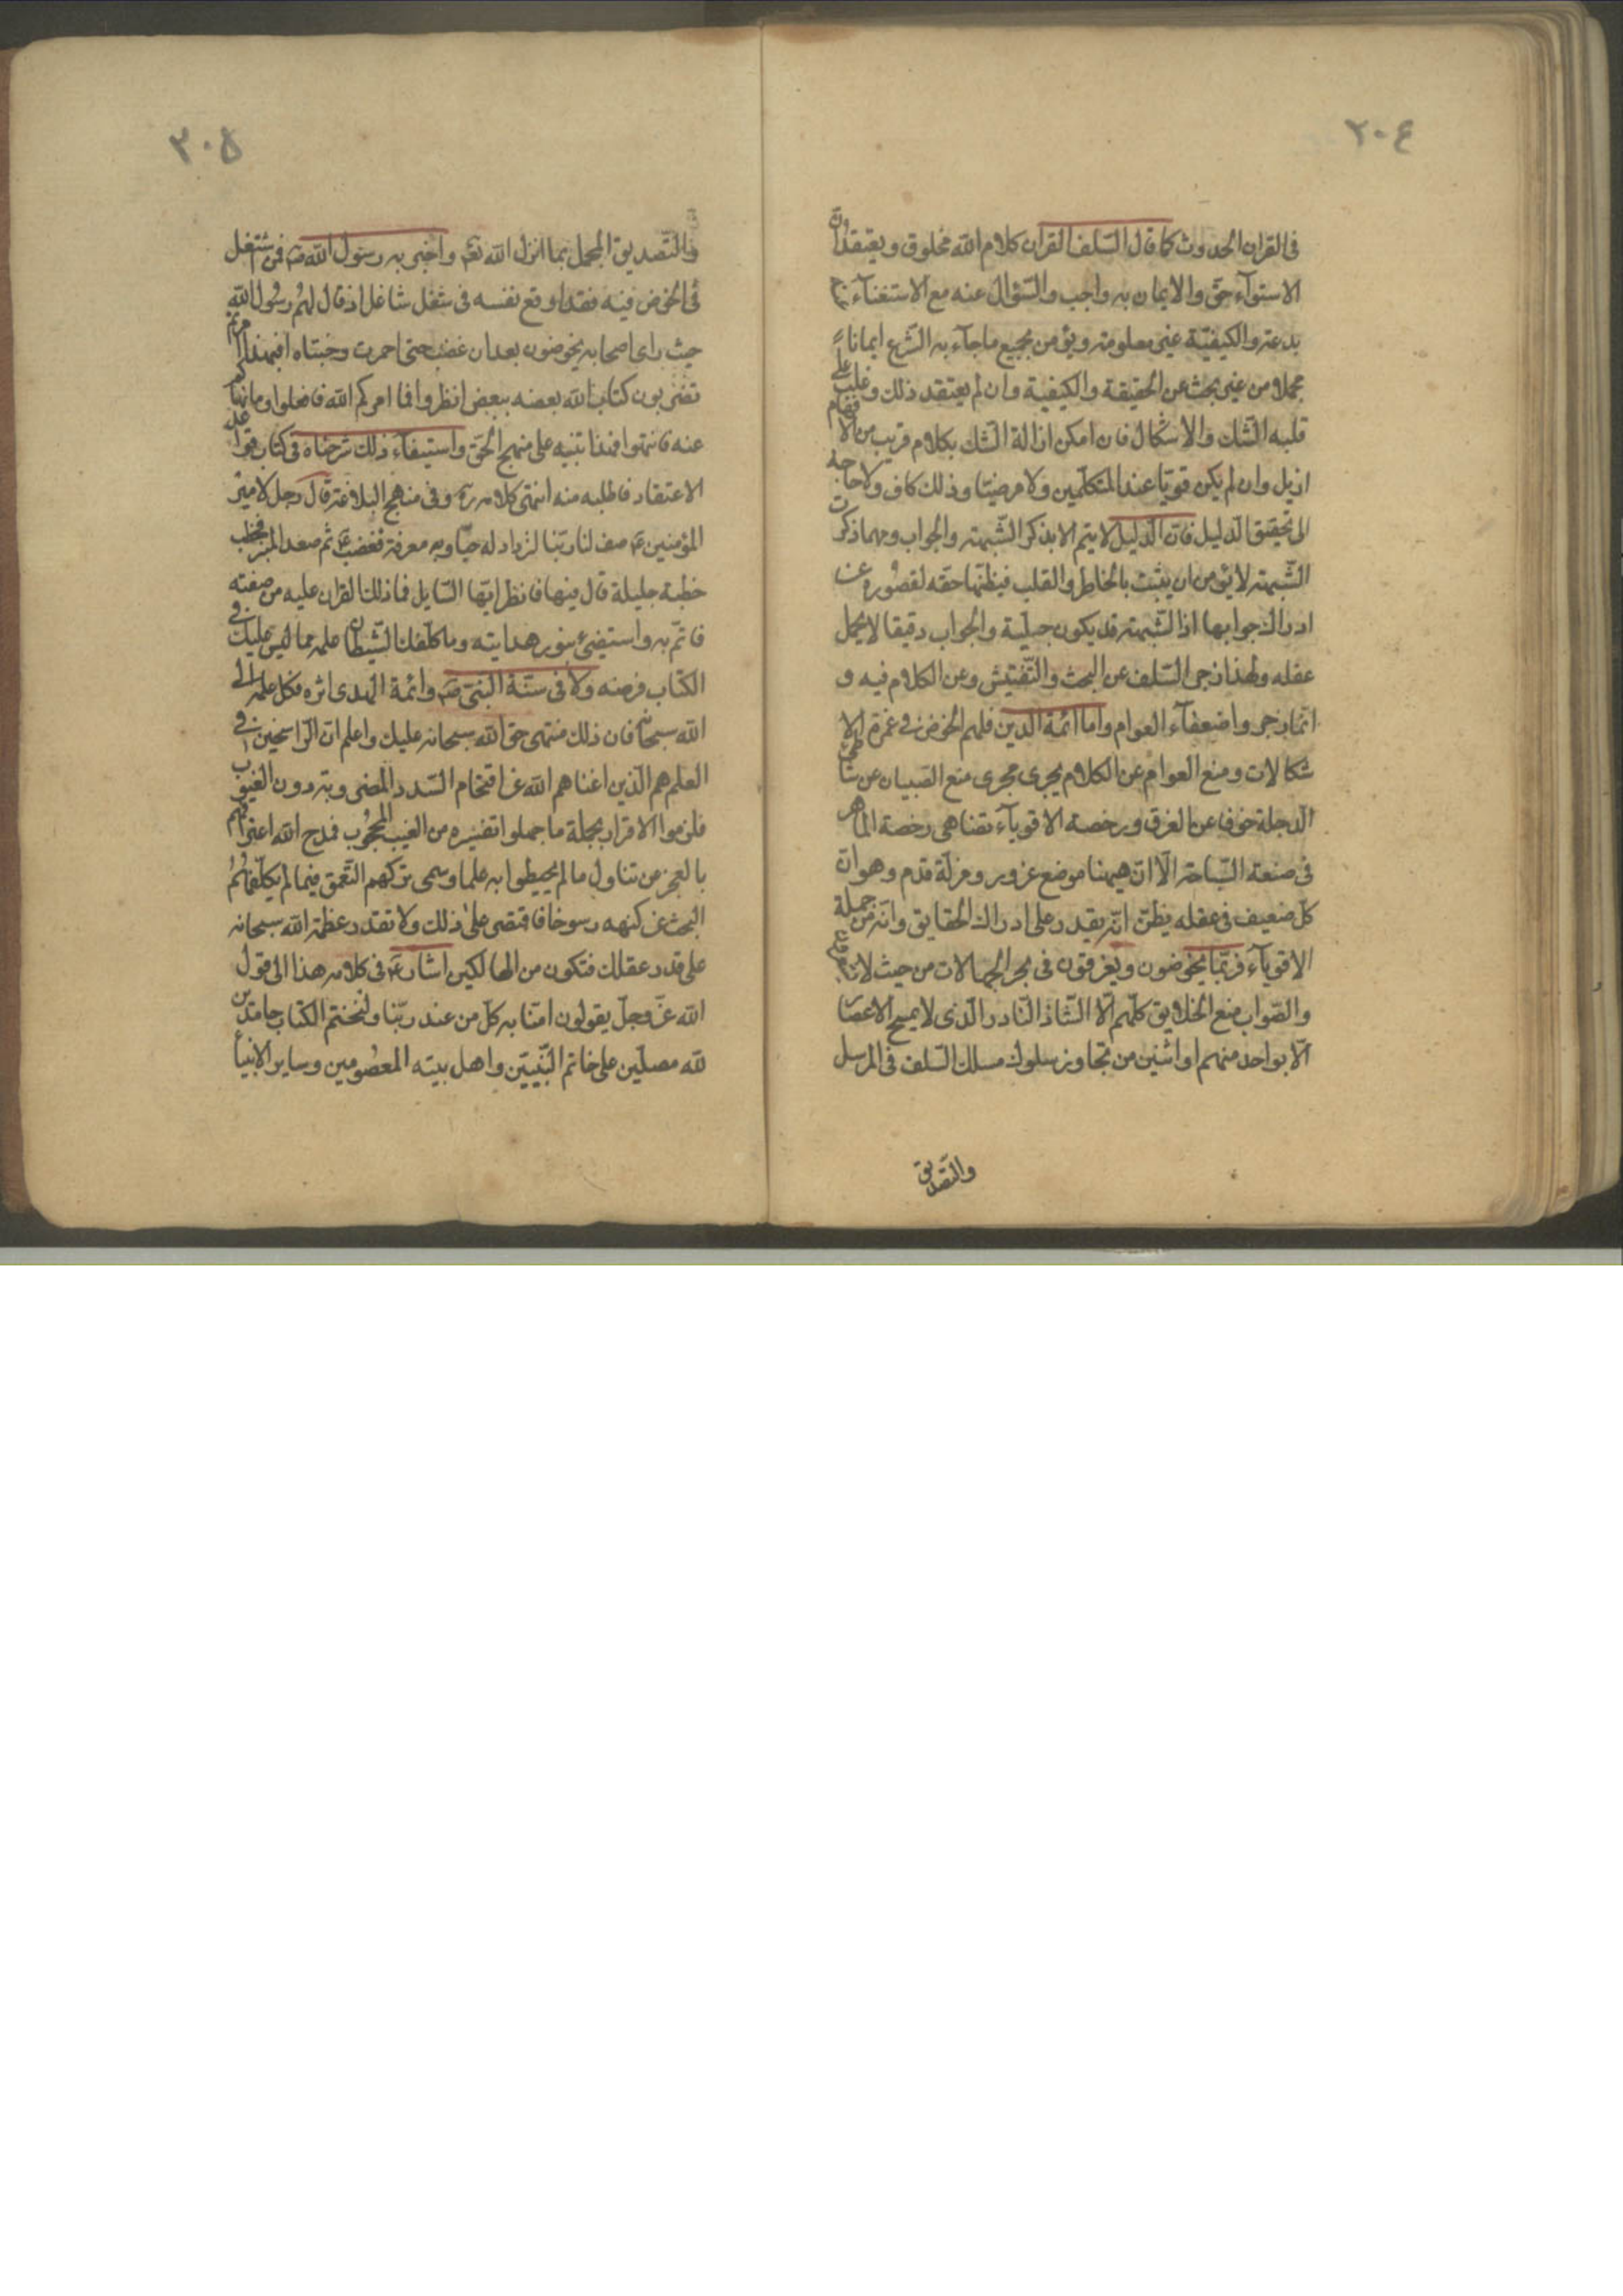 ٢٠٤
فى القران الحدوث كما قال السّلف القران كلام الله مخلوق ويعتقد انّ
الاستوآء حقّ والايمان به واجب والسّؤال عنه مع الاستغنآء عنه
بدعة والكيفيّة غير معلومة ويؤمن بجميع ماجآء به الشّرع ايمانا
مجملا من غير بحث عن الحقيقة والكيفية وان لم يعتقد ذلك وغلب على
قلبه الشّك والاشكال فان امكن ازالة الشّك بكلام قريب من الافهام
ازيل وان لم يكن قويّا عند المتكلّمين ولا مرضيّا وذلك كاف ولا حاجة
الى تحقيق الدّليل فانّ الدّليل لا يتم الا بذكر الشّبهة والجواب ومهما ذكرت
الشّبهة لا يؤمن ان يثبت بالخاطر والقلب فيظنّها حقه لقصوره عن
ادراك جوابها اذ الشّبهة قد يكون جليّة والجواب دقيقا لا يحمل
عقله ولهذا زجر السّلف عن البحث والتّفتيش وعن الكلام فيه و
انّما زجروا ضعفآء العوام واما ائمّة الدّين فلهم الخوض فى غمرة الا
شكالات ومنع العوام عن الكلام يجرى مجرى منع الصّبيان عن شاطئ
الدّجلة خوفا عن الغرق ورخصة الاقويآء تضاهى رخصة الماهر
فى صنعة السّباحة الّا انّ هيهنا موضع غرور ومزلّة قدم وهو ان
كلّ ضعيف فى عقله يظنّ انّه يقدر على ادراك الحقايق وانّه من جملة
الاقويآء فربّما يخوضون ويغرقون فى بحر الجهالات من حيث لا
والصّواب منع الخلايق كلّهم الّا الشّاذ النّادر الّذى لا يسمح الاعصار
الّا بواحد منهم او اثنين من تجاوز سلوك مسلك السّلف فى المرسل
والتّصديق
٣٠٥
والتّصديق المجمل بما انزل الله تعم واخبر به رسول الله ص فمن شتغل
فى الخوض فيه فقد اوقع نفسه فى شغل شاغل اذ قال لهم رسول الله
حيث راى اصحابه يخوضون بعد ان غضب حتى احمرت وجنتاه افبهذا امرتم
تضربون كتاب الله بعضه ببعض انظروا فما امركم الله فافعلوا وما نهاكم
عنه فانتهوا فهذا تنبيه على منهج الحقّ واستيفآء ذلك شرحناه فى كتاب قواعد
الاعتقاد فاطلبه منه انتهى كلامه ره وفى مناهج البلاغة قال رجل لامير
المؤمنين ع صف لنا ربّنا لنزداد له حبّا وبه معرفة فغضب ع ثم صعد المنبر فخطب
خطبة جليلة قال فيها فانظر ايّها السّايل فما ذلك القران عليه من صفته
فاتمّ به واستضئ بنور هدايته وما كلّفك الشّيطان علمه مما ليس عليك فى
الكتاب فرضه ولا فى سنّة النّبى ص وائمّة الهدى اثره فكل علمه الى
الله سبحانه فان ذلك منتهى حقّ الله سبحانه عليك واعلم انّ الرّاسخين فى
العلم هم الّذين اغناهم الله عن اقتحام السّدد المضروبة دون الغيوب
فلزموا الاقرار بجملة ما جهلوا تفسيره من الغيب المحجوب فمدح الله اعترافهم
بالعجز عن تناول ما لم يحيطوا به علما وسمى تركهم التّعمق فيما لم يكلّفهم
البحث عن كنهه رسوخا فاقتصر على ذلك ولا تقدر عظمة الله سبحانه
على قدر عقلك فتكون من الهالكين اشار ع فى كلامه هذا الى قول
الله عزّ وجلّ يقولون امنّا به كلّ من عند ربّنا ولنختم الكتاب حامدين
لله مصلّين على خاتم النّبيّين واهل بيته المعصومين وساير الانبيآ